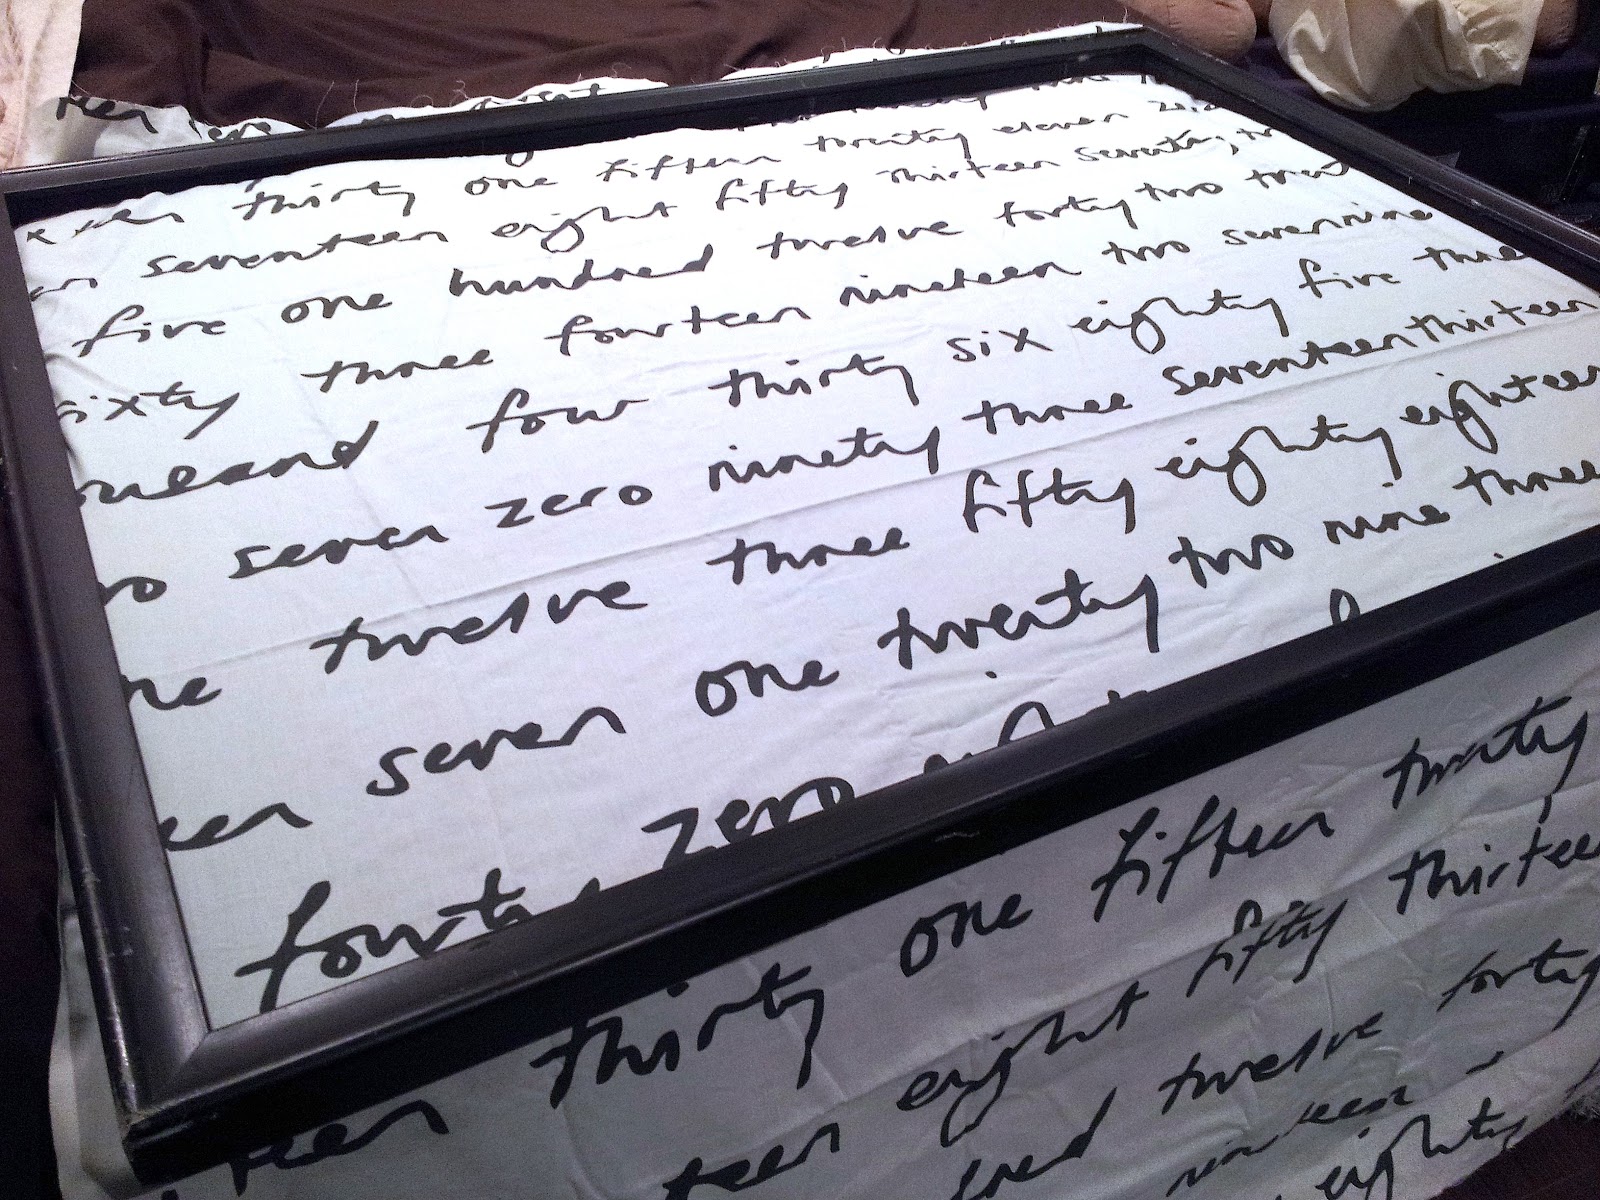 thirty one fifteen twenty eleven
seventeen eight fifty thirteen seventy
five one hundred twelve forty two
sixty three fourteen nineteen two seven nine
four thirty six eighty five three
seven zero ninety three seventeen thirteen
twelve three fifty eighty eighteen
seven one twenty two nine three
forty zero
thirty one fifteen twenty
teen eight fifty thirteen
twelve forty
nineteen
eighty